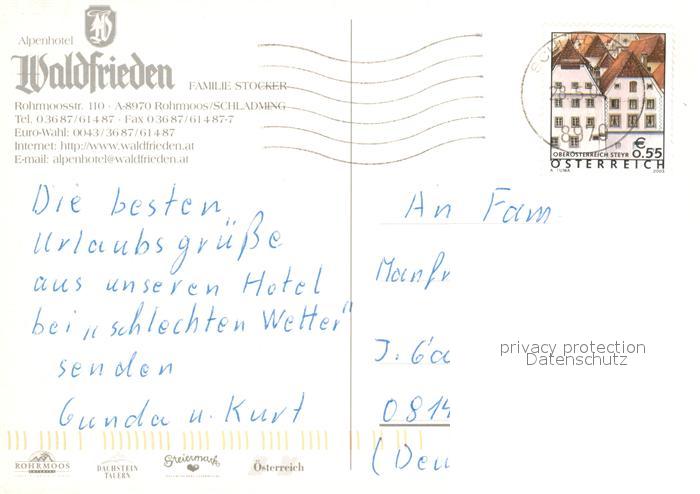 Alpenhotel
Waldfrieden FAMILIE STOCKER
Rohrmoosstr. 110 · A-8970 Rohrmoos/SCHLADMING
Tel. 0 36 87/6 14 87 · Fax 0 36 87/6 14 87-7
Euro-Wahl: 00 43/36 87/6 14 87
Internet: http://www.waldfrieden.at
E-mail: alpenhotel@waldfrieden.at
Die besten
Urlaubsgrüße
aus unseren Hotel
bei „schlechten Wetter"
senden
Gunda u. Kurt
ROHRMOOS
DACHSTEIN
TAUERN
Steiermark
Österreich
8970
OBERÖSTERREICH STEYR
€ 0.55
A. TUMA 2003
ÖSTERREICH
An Fam.
Manfr
J.
privacy protection
Datenschutz
0814
(Deu